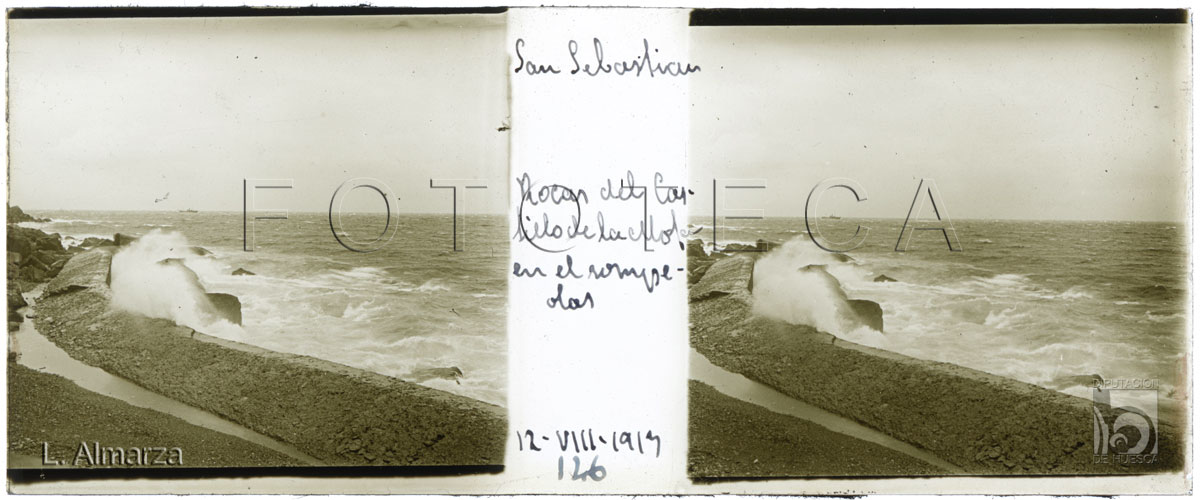 San Sebastian
FOTOTECA
Rocas del Cas-
tillo de la Mota
en el rompe-
olas
12-VIII-1917
126
L. Almarza
DIPUTACIÓN
DE HUESCA